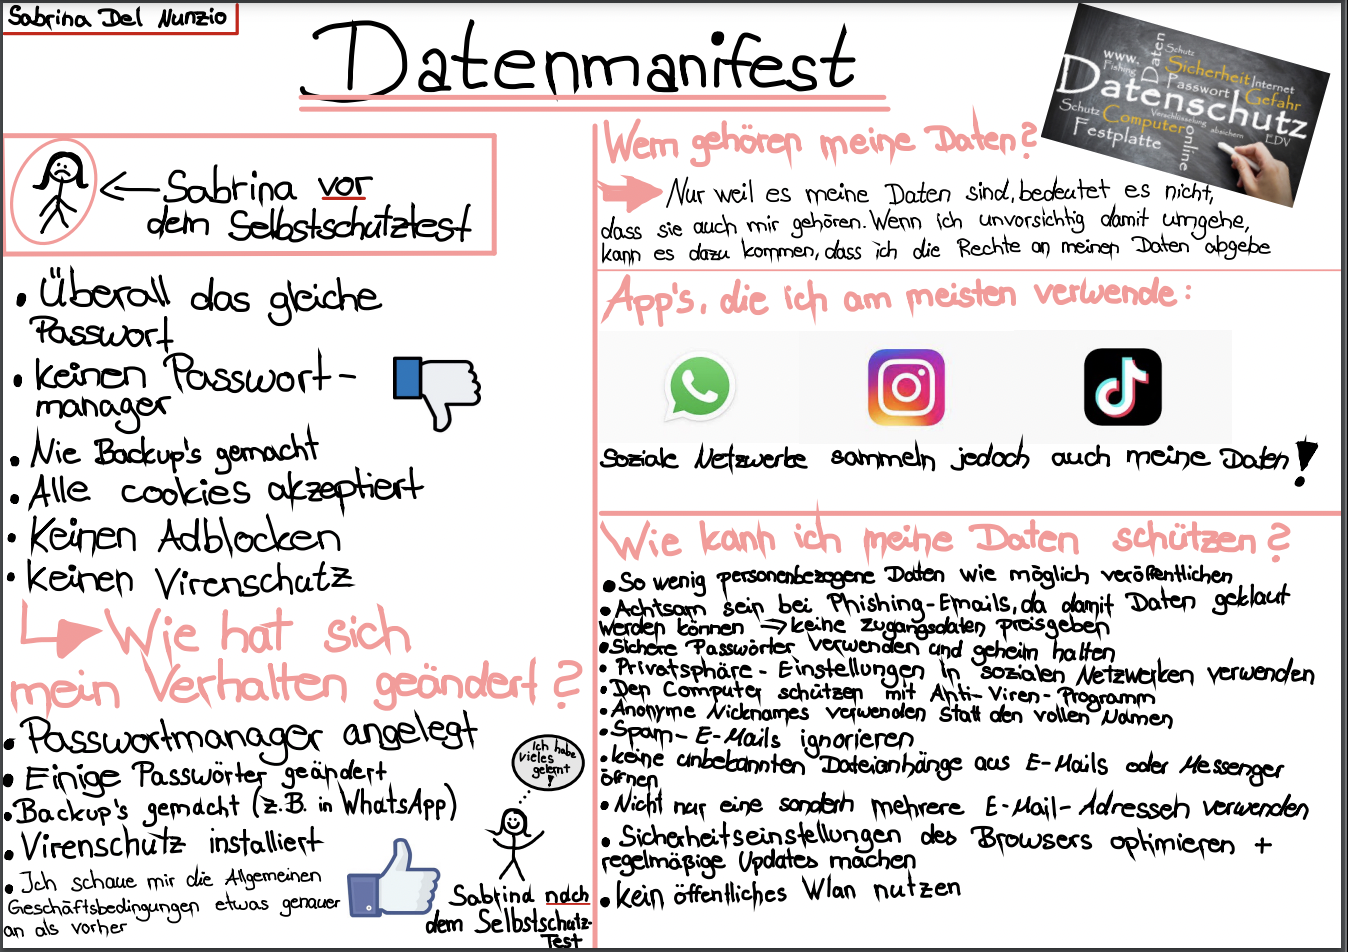 Sabrina Del Nunzio
Datenmanifest
www.
Fishing
Daten
Schutz
Sicherheit
Internet
Passwort
Gefahr
Datenschutz
Schutz
Computer
Verschlüsselung
absichern
EDV
Festplatte
online
Sabrina vor
dem Selbstschutztest
• Überall das gleiche
Passwort
• keinen Passwort-
manager
• Nie Backup's gemacht
• Alle cookies akzeptiert
• Keinen Adblocken
• Keinen Virenschutz
Wie hat sich
mein Verhalten geändert?
• Passwortmanager angelegt
• Einige Passwörter geändert
• Backup's gemacht (z.B. in WhatsApp)
• Virenschutz installiert
• Ich schaue mir die Allgemeinen
Geschäftsbedingungen etwas genauer
an als vorher
Ich habe
vieles
gelernt
!
Sabrina nach
dem Selbstschutz-
Test
Wem gehören meine Daten?
Nur weil es meine Daten sind, bedeutet es nicht,
dass sie auch mir gehören. Wenn ich unvorsichtig damit umgehe,
kann es dazu kommen, dass ich die Rechte an meinen Daten abgebe
App's, die ich am meisten verwende:
Soziale Netzwerke sammeln jedoch auch meine Daten!
Wie kann ich meine Daten schützen?
• So wenig personenbezogene Daten wie möglich veröffentlichen
• Achtsam sein bei Phishing-Emails, da damit Daten geklaut
werden können ⇒ keine Zugangsdaten preisgeben
• Sichere Passwörter verwenden und geheim halten
• Privatsphäre-Einstellungen in sozialen Netzwerken verwenden
• Den Computer schützen mit Anti-Viren-Programm
• Anonyme Nicknames verwenden statt den vollen Namen
• Spam-E-Mails ignorieren
• keine unbekannten Dateianhänge aus E-Mails oder Messenger
öffnen
• Nicht nur eine sondern mehrere E-Mail-Adressen verwenden
• Sicherheitseinstellungen des Browsers optimieren +
regelmäßige Updates machen
• kein öffentliches Wlan nutzen